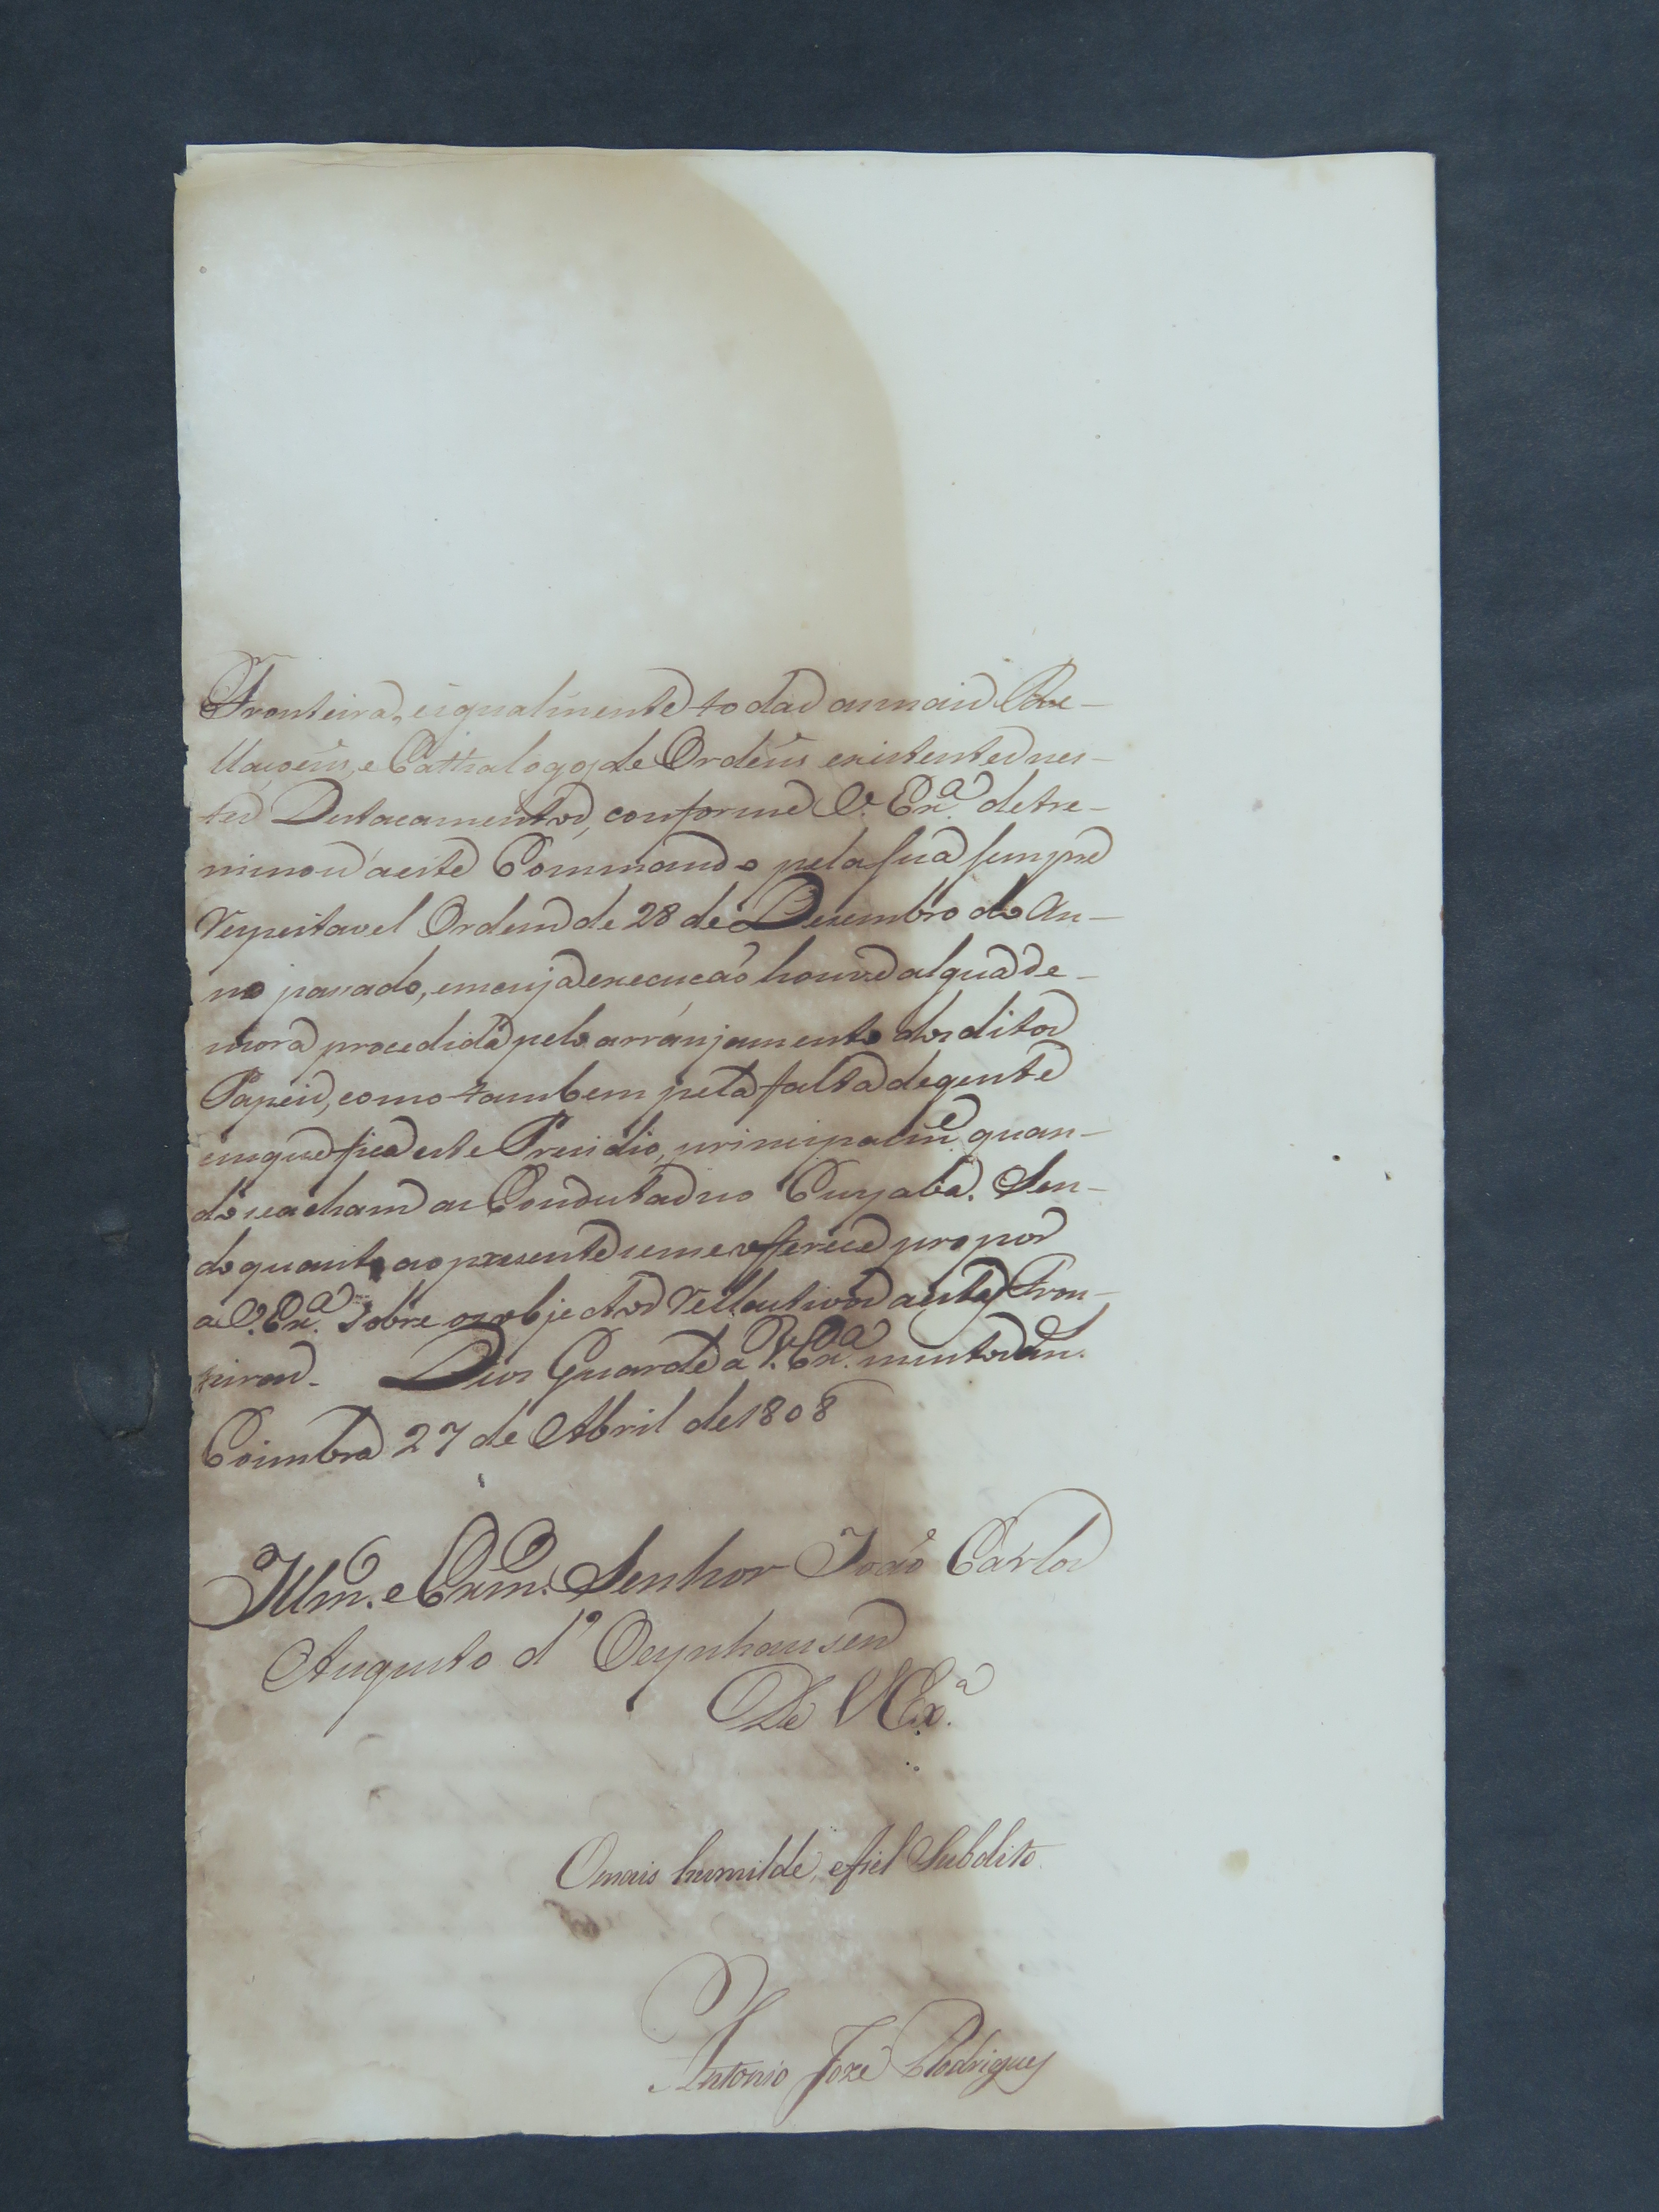 Fronteira, eigualmente todas asmais Re-
llaçoens, e Cathalogos de Ordens existentes nes-
tes Destacamentos, conforme V. Exª. detre-
minou áeste Commando pela sua sempre
respeitavel Ordem de 28 de Dezembro do An-
no passado, emcuja execucaõ houve algua de-
mora procedida pelo arranjamento dos ditos
Papeis, como tambem pela falta degente
emque fica este Presidio, principalme quan-
do seacham as Condutas no Cuyabá. Sen-
do quanto ao prezente semeofferece propor
a V. Exª. Sobre os objectos rellactivos aestas Fron-
teiras. Deos Guarde a V. Exª. muitos an.
Coimbra 27 de Abril de 1808
Illmo. e Exmo. Senhor Joaõ Carlos
Augusto d' Oeynhausen
De V Exª.
Omais humilde, efiel Subdito
Antonio Joze Rodrigues